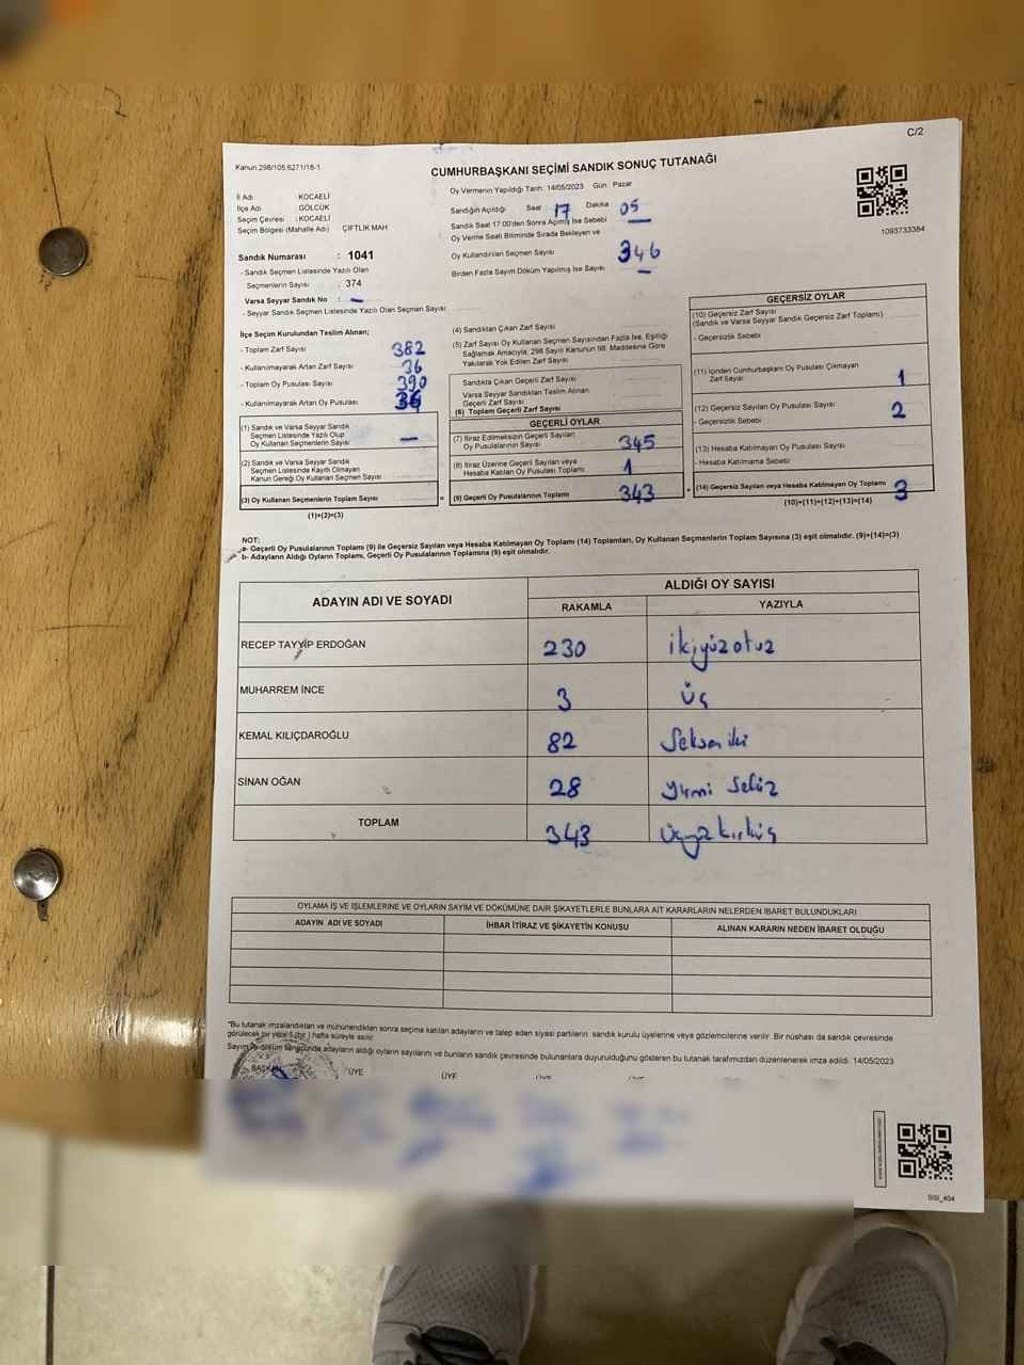 C/2
Kanun:298/105,6271/18-1
CUMHURBAŞKANI SEÇİMİ SANDIK SONUÇ TUTANAĞI
İl Adı : KOCAELİ
İlçe Adı : GÖLCÜK
Seçim Çevresi : KOCAELİ
Seçim Bölgesi (Mahalle Adı) ÇİFTLİK MAH
Sandık Numarası : 1041
- Sandık Seçmen Listesinde Yazılı Olan
Seçmenlerin Sayısı : 374
Varsa Seyyar Sandık No : -
- Seyyar Sandık Seçmen Listesinde Yazılı Olan Seçmen Sayısı
Oy Vermenin Yapıldığı Tarih: 14/05/2023 Gün Pazar
Sandığın Açıldığı Saat 17 Dakika 05
Sandık Saat 17:00'den Sonra Açılmış İse Sebebi -
Oy Verme Saati Bitiminde Sırada Bekleyen ve
Oy Kullandırılan Seçmen Sayısı 346
Birden Fazla Sayım Döküm Yapılmış İse Sayısı -
1093733384
İlçe Seçim Kurulundan Teslim Alınan;
- Toplam Zarf Sayısı 382
- Kullanılmayarak Artan Zarf Sayısı 36
- Toplam Oy Pusulası Sayısı 390
- Kullanılmayarak Artan Oy Pusulası
(1) Sandık ve Varsa Seyyar Sandık
Seçmen Listesinde Yazılı Olup
Oy Kullanan Seçmenlerin Sayısı -
(2) Sandık ve Varsa Seyyar Sandık
Seçmen Listesinde Kaydı Olmayan
Kanun Gereği Oy Kullanan Seçmen Sayısı
(3) Oy Kullanan Seçmenlerin Toplam Sayısı =
(1)+(2)=(3)
(4) Sandıktan Çıkan Zarf Sayısı
(5) Zarf Sayısı Oy Kullanan Seçmen Sayısından Fazla İse, Eşitliği
Sağlamak Amacıyla, 298 Sayılı Kanunun 98. Maddesine Göre
Yakılarak Yok Edilen Zarf Sayısı
Sandıkta Çıkan Geçerli Zarf Sayısı
Varsa Seyyar Sandıktan Teslim Alınan
Geçerli Zarf Sayısı
(6) Toplam Geçerli Zarf Sayısı
GEÇERLİ OYLAR
(7) İtiraz Edilmeksizin Geçerli Sayılan
Oy Pusulalarının Sayısı 345
(8) İtiraz Üzerine Geçerli Sayılan veya
Hesaba Katılan Oy Pusulası Toplamı 1
(9) Geçerli Oy Pusulalarının Toplamı 343
GEÇERSİZ OYLAR
(10) Geçersiz Zarf Sayısı
(Sandık ve Varsa Seyyar Sandık Geçersiz Zarf Toplamı)
- Geçersizlik Sebebi
(11) İçinden Cumhurbaşkanı Oy Pusulası Çıkmayan
Zarf Sayısı 1
(12) Geçersiz Sayılan Oy Pusulası Sayısı 2
- Geçersizlik Sebebi
(13) Hesaba Katılmayan Oy Pusulası Sayısı
- Hesaba Katılmama Sebebi
+ (14) Geçersiz Sayılan veya Hesaba Katılmayan Oy Toplamı 3
(10)+(11)+(12)+(13)=(14)
NOT:
a- Geçerli Oy Pusulalarının Toplamı (9) ile Geçersiz Sayılan veya Hesaba Katılmayan Oy Toplamı (14) Toplamları, Oy Kullanan Seçmenlerin Toplam Sayısına (3) eşit olmalıdır. (9)+(14)=(3)
b- Adayların Aldığı Oyların Toplamı, Geçerli Oy Pusulalarının Toplamına (9) eşit olmalıdır.
ADAYIN ADI VE SOYADI ALDIĞI OY SAYISI
RAKAMLA YAZIYLA
RECEP TAYYİP ERDOĞAN 230 ikiyüzotuz
MUHARREM İNCE 3 üç
KEMAL KILIÇDAROĞLU 82 Seksen iki
SİNAN OĞAN 28 yirmi sekiz
TOPLAM 343 üçyüzkırküç
OYLAMA İŞ VE İŞLEMLERİNE VE OYLARIN SAYIM VE DÖKÜMÜNE DAİR ŞİKAYETLERLE BUNLARA AİT KARARLARIN NELERDEN İBARET BULUNDUKLARI
ADAYIN ADI VE SOYADI İHBAR İTİRAZ VE ŞİKAYETİN KONUSU ALINAN KARARIN NEDEN İBARET OLDUĞU
*Bu tutanak imzalandıktan ve mühürlendikten sonra seçime katılan adayların ve talep eden siyasi partilerin sandık kurulu üyelerine veya gözlemcilerine verilir. Bir nüshası da sandık çevresinde
görülecek bir yere 1 (bir) hafta süreyle asılır.
Sayım ve döküm sonucunda adayların aldığı oyların sayılarını ve bunların sandık çevresinde bulunanlara duyurulduğunu gösteren bu tutanak tarafımızdan düzenlenerek imza edildi. 14/05/2023
BAŞKAN ÜYE ÜYE ÜYE
SSI_404